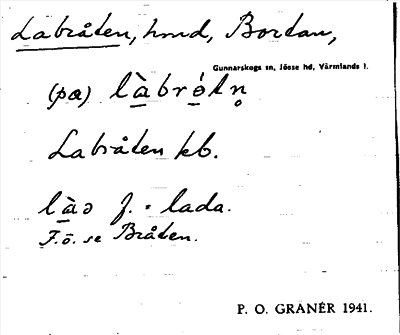 Labråten, hmd, Bordan,
Gunnarskogs sn, Jösse hd, Värmlands l.
(pa) làbrótn̥
Labråten kb.
làə f. = lada.
F.ö. se Bråten.
P. O. GRANÉR 1941.